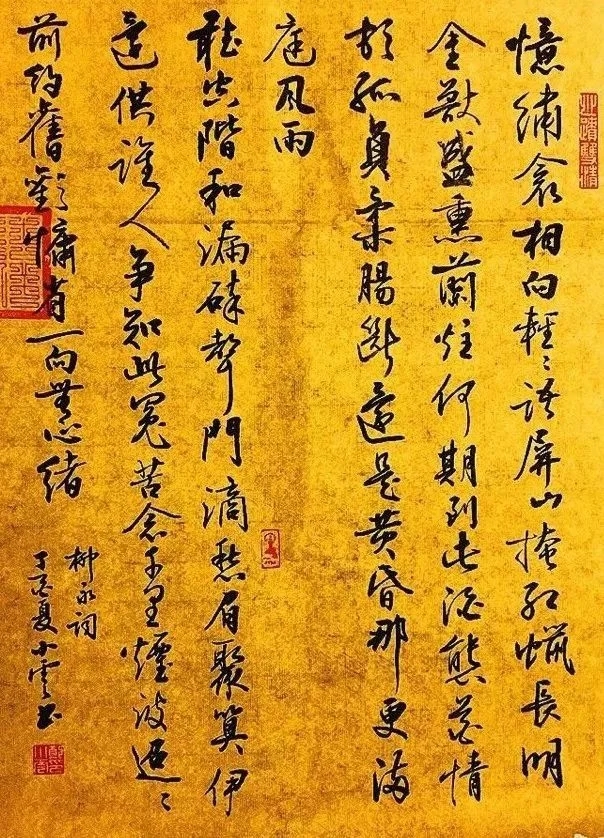 憶繡衾相向輕〻語屏山掩紅蠟長明
金獸盛熏蘭炷何期到此酒態花情
頓孤負柔腸斷還是黄昏那更滿
庭风雨
聽空階和漏碎聲門滴愁眉聚算伊
還供誰人争知此冤苦念千里煙波迢〻
前約舊歡慵省一向無心緒
柳永詞
丁亥夏小雲書